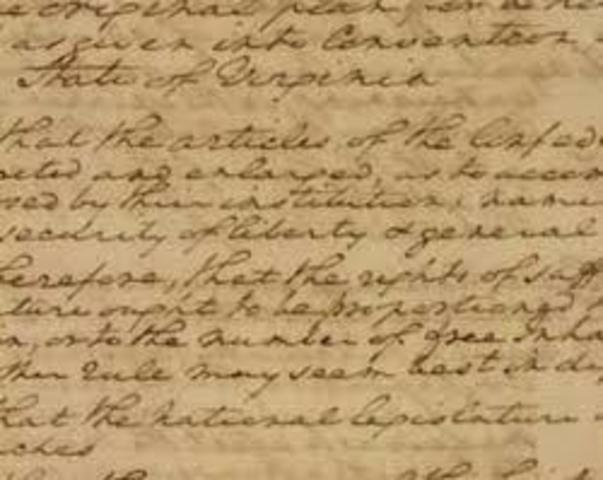 original plan
as given into Convention
State of Virginia
that the articles of the Confed
and enlarged, as to accom
sed by their institution; name
security of liberty & general
herefore, that the rights of suff
ture ought to be proportioned
or to the number of free inha
rule may seem best in di
hat the national legislature
ches